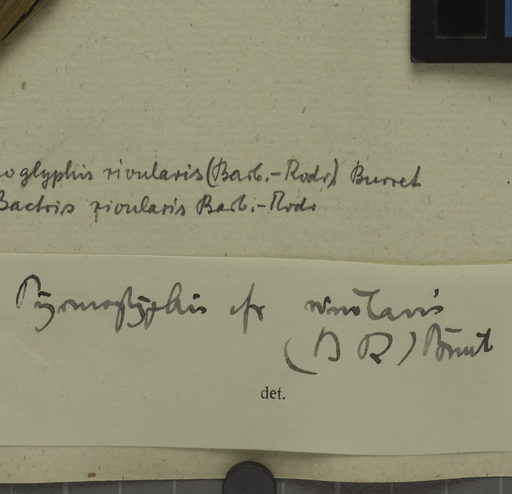 oglyphis rivularis (Barb.-Rodr) Burret
Bactris rivularis Barb.-Rodr
Pyrenoglyphis cfr rivularis
(B R) Burret
det.